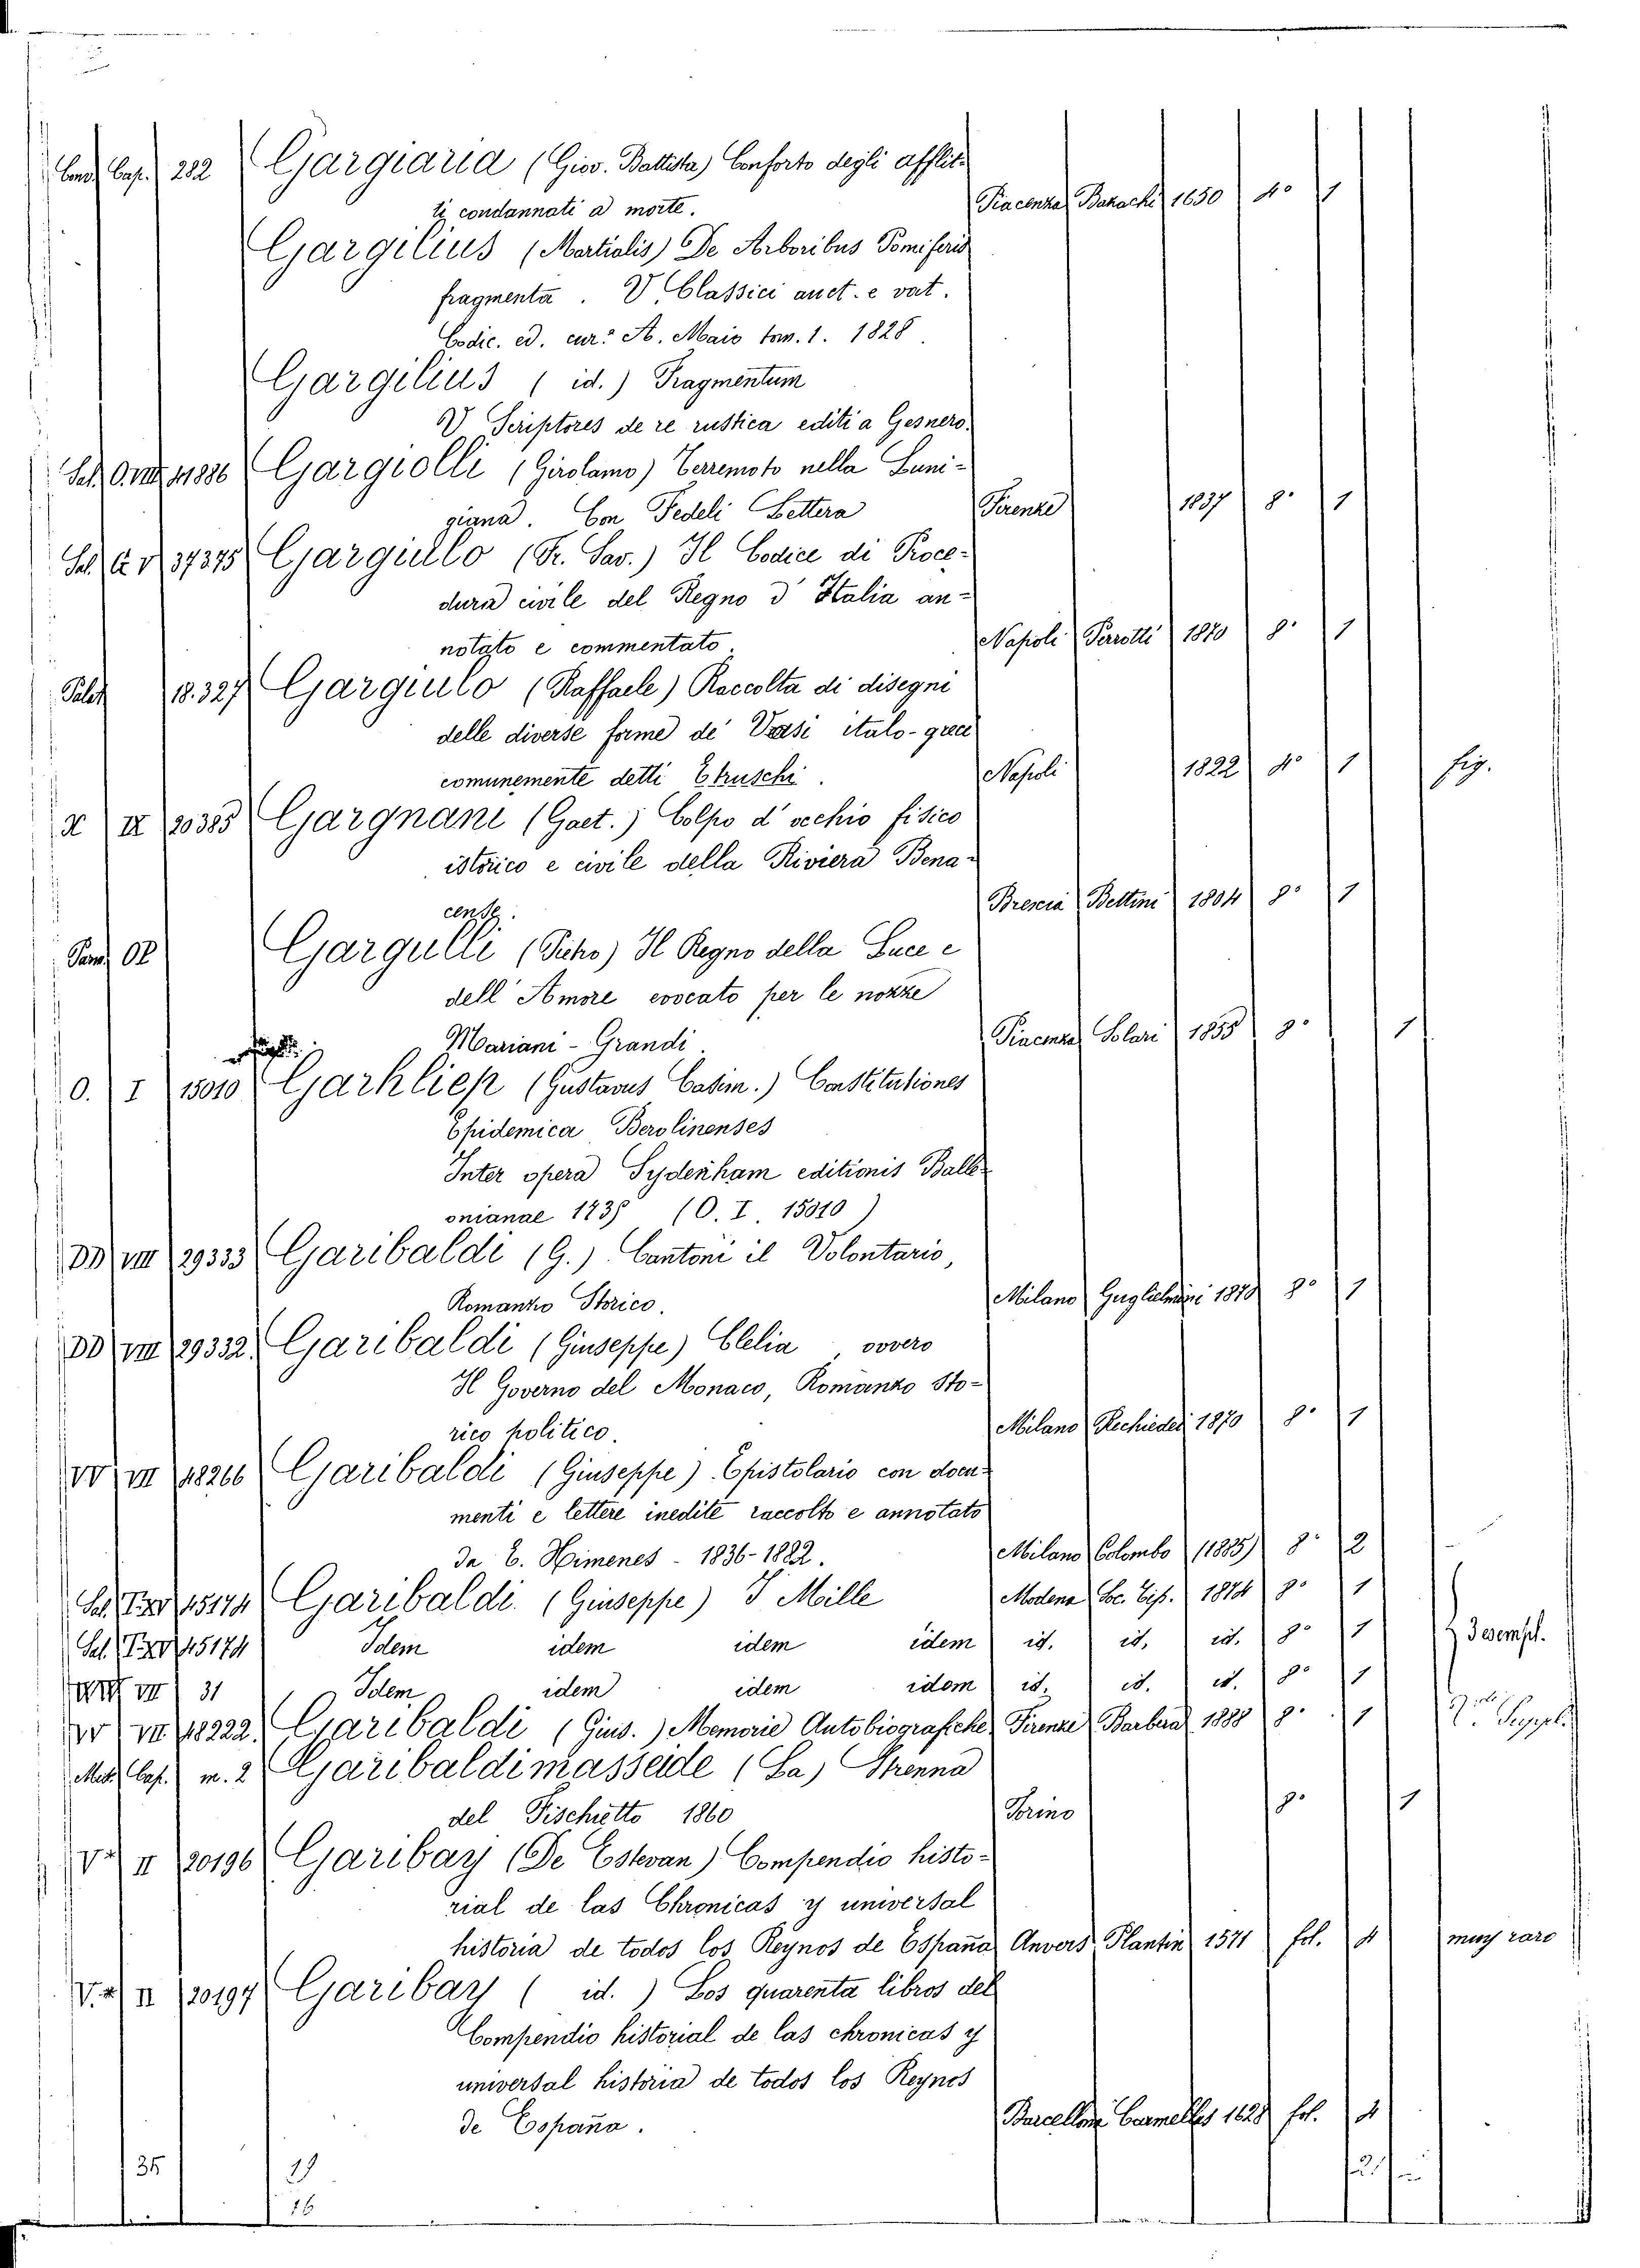 Cond. Cap. 282 Gargiaria (Giov. Battista) Conforto degli afflit-
ti condannati a morte. Piacenza Bazachi 1650 4° 1
Gargilius (Martialis) De Arboribus Pomiferis
fragmenta. V. Classici auct. e vat.
Codic. ed. cur. A. Maio tom. 1. 1828.
Gargilius (id.) Fragmentum
V Scriptores de re rustica editi a Gesnero.
41886 Gargiolli (Girolamo) Terremoto nella Luni-
giana. Con Fedeli Lettera Firenze 1837 8° 1
37375 Gargiulo (Fr. Sav.) Il Codice di Proce-
dura civile del Regno d'Italia an-
notato e commentato. Napoli Perrotti 1870 8° 1
Palat 18.327 Gargiulo (Raffaele) Raccolta di disegni
delle diverse forme de' Vasi italo-greci
comunemente detti Etruschi. Napoli 1822 4° 1 fig.
X II 20385 Gargnani (Gaet.) Colpo d'occhio fisico
istorico e civile della Riviera Bena-
cense. Brescia Bettini 1804 8° 1
Gargulli (Pietro) Il Regno della Luce e
dell'Amore evocato per le nozze
Mariani - Grandi. Piacenza Solari 1855 8° 1
O. I 15010 Garkliep (Gustavus Casim.) Constitutiones
Epidemica Berolinenses
Inter opera Sydenham editionis Ball-
onianae 1735 (O. I. 15010)
DD VIII 29333 Garibaldi (G.) Cantoni il Volontario,
Romanzo Storico. Milano Guglielmini 1870 8° 1
DD VIII 29332. Garibaldi (Giuseppe) Clelia, ovvero
Il Governo del Monaco, Romanzo Sto-
rico politico. Milano Rechiedei 1870 8° 1
VV VII 18266 Garibaldi (Giuseppe) Epistolario con docu-
menti e lettere inedite raccolto e annotato
da E. Ximenes - 1836-1882. Milano Colombo (1885) 8° 2
45174 Garibaldi (Giuseppe) I Mille Modena Soc. Tip. 1874 8° 1
45174 Idem idem idem idem id. id. id. 8° 1 3 esempl.
VII 31 Idem idem idem idem id. id. id. 8° 1
VV VII 18222. Garibaldi (Gius.) Memorie Autobiografiche Firenze Barbera 1888 8° 1
m. 2 Garibaldimasseide (La) Strenna
del Fischietto 1860 Torino 8° 1
V* II 20196 Garibay (De Estevan) Compendio histo-
rial de las Chronicas y universal
historia de todos los Reynos de España Anvers Plantin 1571 fol. 4 muy raro
V.* II 20197 Garibay (id.) Los quarenta libros del
Compendio historial de las chronicas y
universal historia de todos los Reynos
de España. Barcellona Cormellas 1628 fol. 4